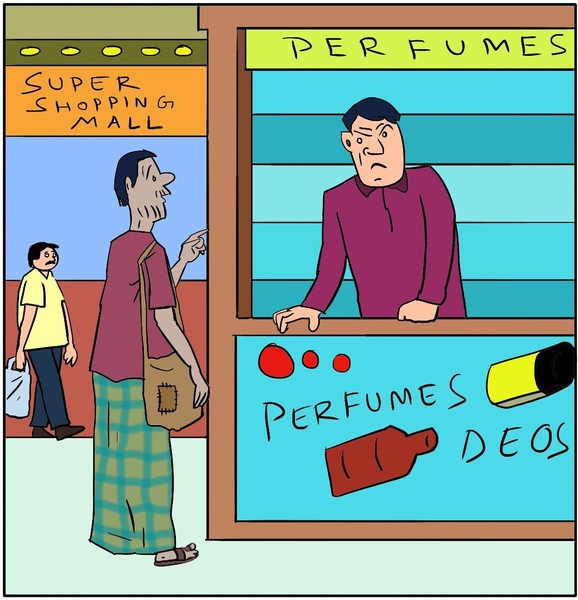 SUPER
SHOPPING
MALL
PERFUMES
PERFUMES
DEOS